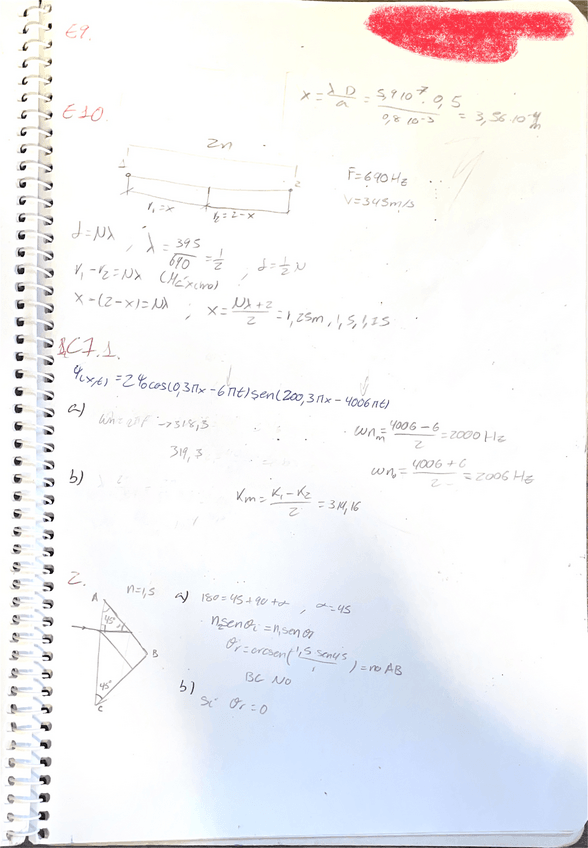 E9.
x = λD/a = 5,9 10⁻⁷ · 0,5 / 0,8 10⁻³ = 3,56·10⁻⁴ m
E10
2m
1
2
r₁=x
r₂=2-x
F=690Hz
V=345m/s
d=Nλ , λ = 345/690 = 1/2 , d=1/2 N
r₁-r₂=Nλ (Máximo)
x-(2-x)=Nλ ; x = Nλ+2/2 = 1,25m, 1,5, 1,75
C7.1.
Ψ(x,t) = 2Ψ₀cos(0,3πx-6πt)sen(200,3πx-4006πt)
a)
ωn=2πF →318,3
319,3
ωnₘ = 4006-6/2 = 2000Hz
ωnₚ = 4006+6/2 = 2006Hz
b)
Kₘ = K₁-K₂/2 = 314,16
2.
n=1,5
A
45
α
B
45
C
a) 180=45+90+α , α=45
n₂senθᵢ=n₁senθr
θr=arcsen(1,5 sen45/1) = no AB
BC NO
b)
Si θr=0